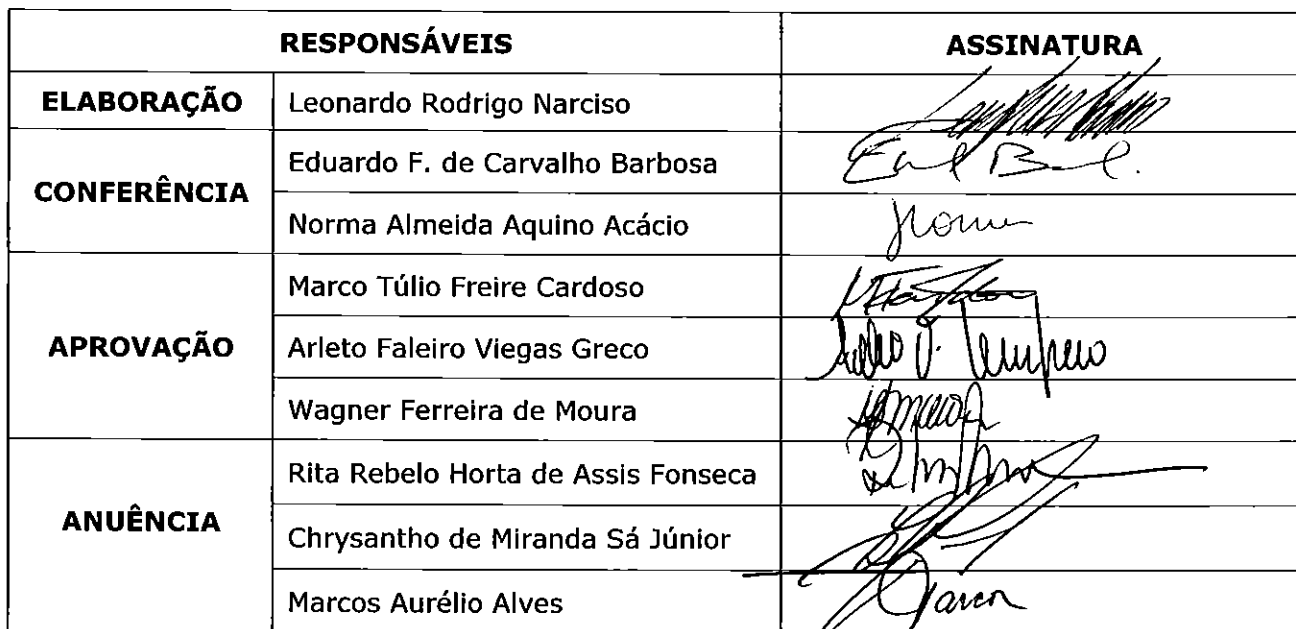 RESPONSÁVEIS ASSINATURA
ELABORAÇÃO Leonardo Rodrigo Narciso
CONFERÊNCIA Eduardo F. de Carvalho Barbosa
Norma Almeida Aquino Acácio
APROVAÇÃO Marco Túlio Freire Cardoso
Arleto Faleiro Viegas Greco
Wagner Ferreira de Moura
ANUÊNCIA Rita Rebelo Horta de Assis Fonseca
Chrysantho de Miranda Sá Júnior
Marcos Aurélio Alves